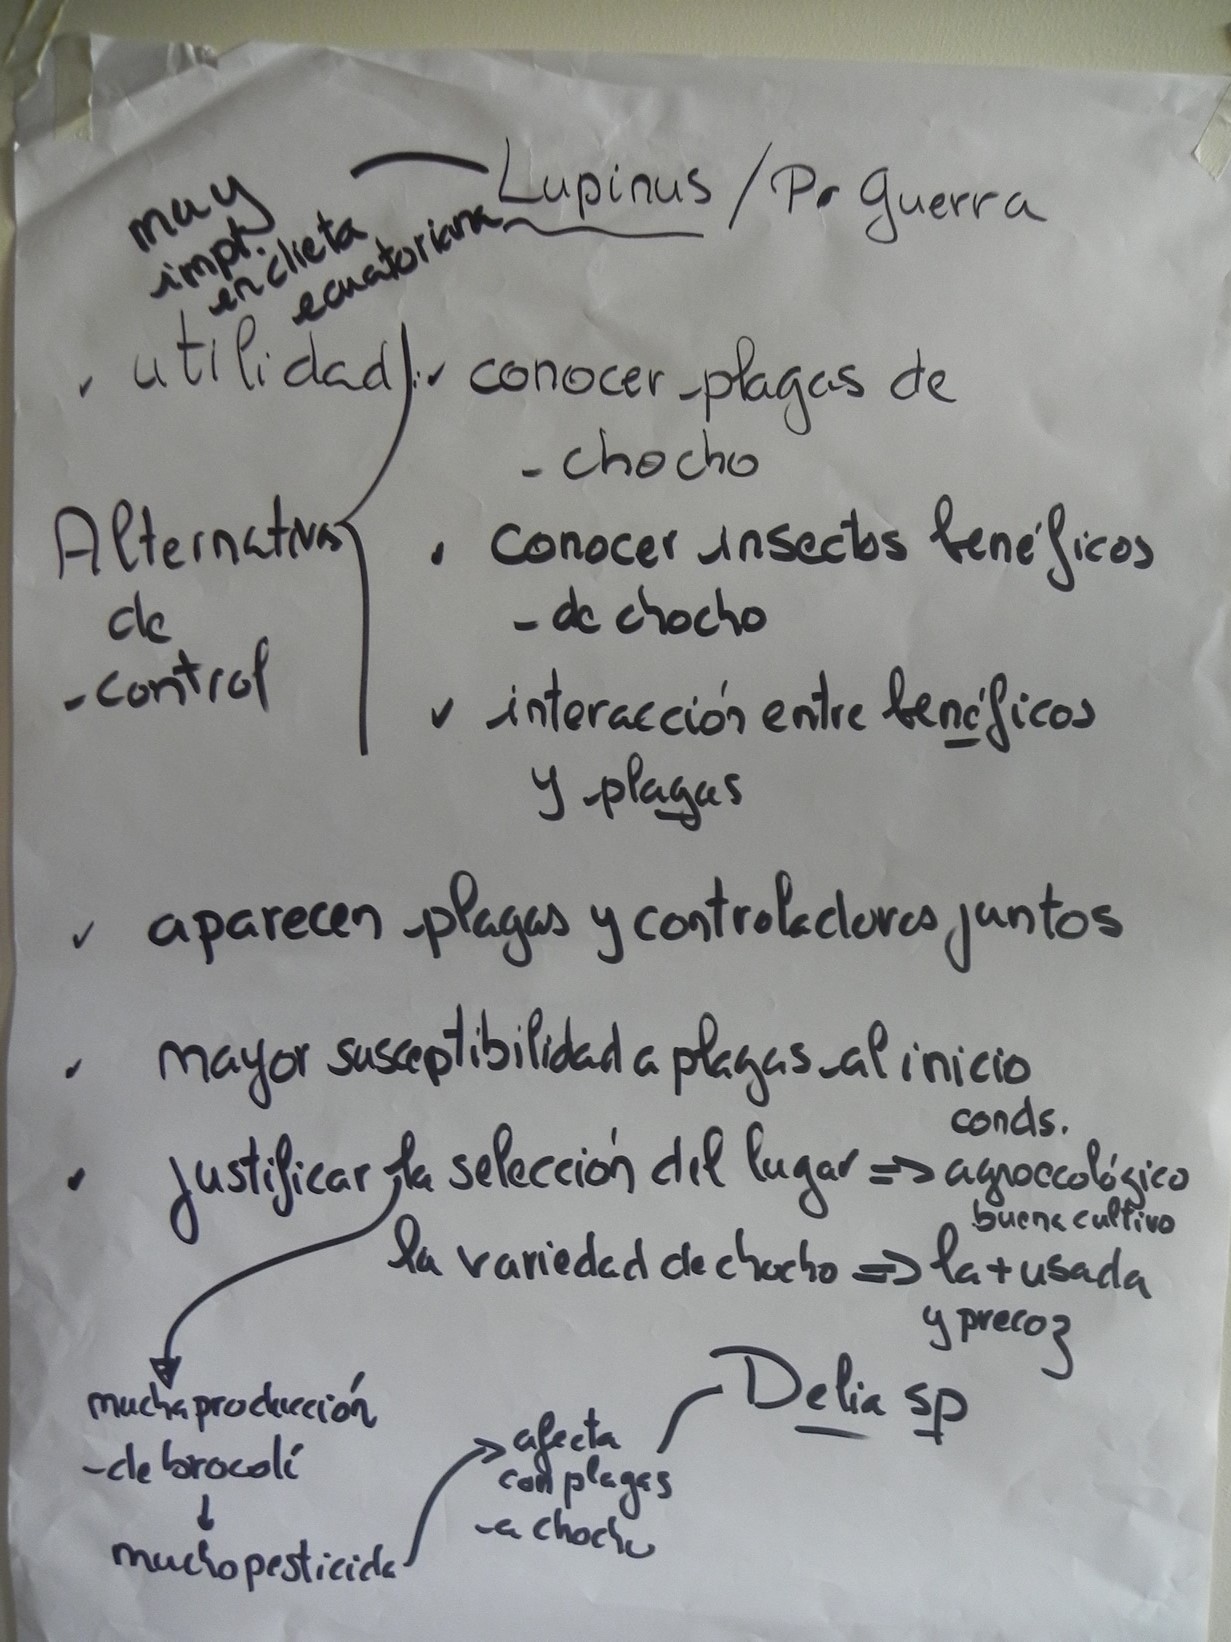 Lupinus / P. Guerra
muy
impt.
en dieta
ecuatoriana
utilidad
conocer plagas de
chocho
Alternativas
de
control
conocer insectos benéficos
de chocho
interacción entre benéficos
y plagas
aparecen plagas y controladores juntos
mayor susceptibilidad a plagas al inicio
justificar la selección del lugar => conds.
agroecológico
buena cultivo
la variedad de chocho => la + usada
y precoz
mucha producción
de brocolí
↓
mucho pesticida
afecta
con plagas
a chocho
Delia sp